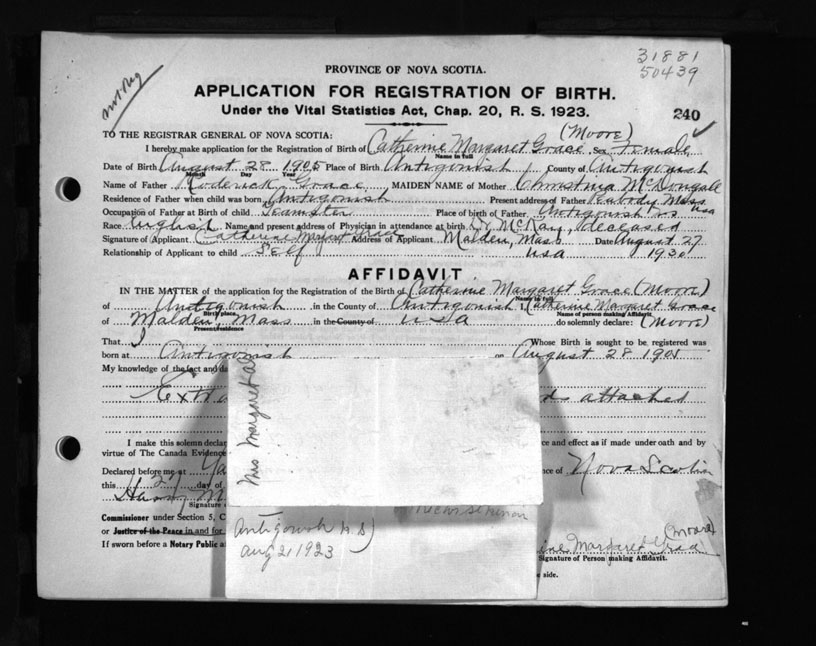 31881
50439
not Reg
PROVINCE OF NOVA SCOTIA.
APPLICATION FOR REGISTRATION OF BIRTH.
Under the Vital Statistics Act, Chap. 20, R. S. 1923.
240
TO THE REGISTRAR GENERAL OF NOVA SCOTIA:
(Moore)
I hereby make application for the Registration of Birth of Catherine Margaret Grace Sex Female
Name in full
Date of Birth August 28 1905 Place of Birth Antigonish County of Antigonish
Month Day Year
Name of Father Roderick Grace MAIDEN NAME of Mother Christina McDougall
Residence of Father when child was born Antigonish Present address of Father Peabody Mass
usa
Occupation of Father at Birth of child Teamster Place of birth of Father Antigonish N S
Race English Name and present address of Physician in attendance at birth Dr McKay, deceased
Signature of Applicant Catherine Margaret Address of Applicant Malden, Mass Date August 27
Relationship of Applicant to child Self usa 1930
AFFIDAVIT
IN THE MATTER of the application for the Registration of the Birth of Catherine Margaret Grace (Moore)
Name in full
of Antigonish in the County of Antigonish I, Catherine Margaret Grace
Birth place, Name of person making Affidavit.
of Malden, Mass in the County of USA do solemnly declare: (Moore)
Present residence
That I Whose Birth is sought to be registered was
born at Antigonish on August 28 1905
My knowledge of the fact and da
Extra ds attached
I make this solemn declar ce and effect as if made under oath and by
virtue of The Canada Evidence
Declared before me at Ya nce of Nova Scotia
this 27 day of
Harry M
Signature
Commissioner under Section 5, C
or Justice of the Peace in and for
If sworn before a Notary Public a
Mrs Margaret
Antigonish N.S)
Aug 21 1923
(Moore)
ine Margaret Grace
Signature of Person making Affidavit.
e side.